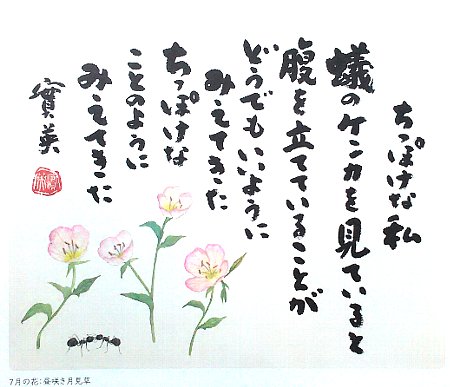 ちっぽけな私
蟻のケンカを見ていると
腹を立てていることが
どうでもいいように
みえてきた
ちっぽけな
ことのように
みえてきた
寳美
7月の花:昼咲き月見草